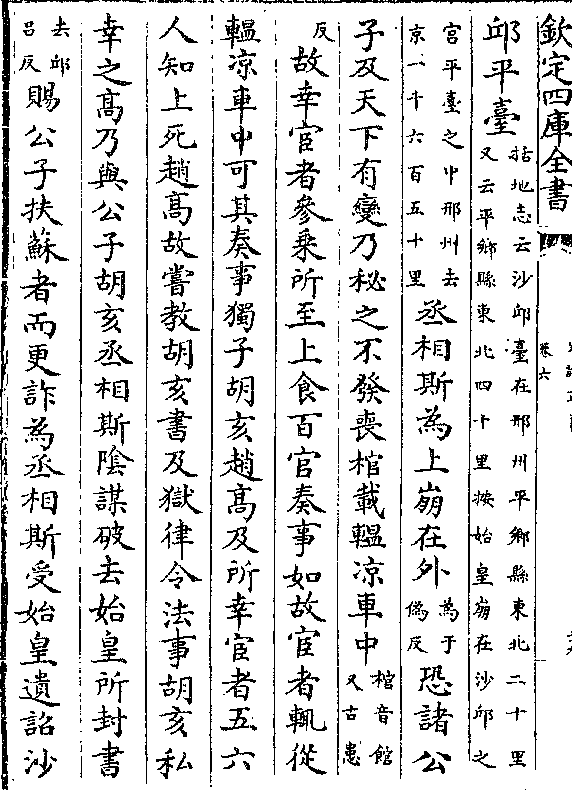 欽定四庫全書
卷六
邱平臺括地志云沙邱臺在邢州平鄉縣東北二十里
又云平鄉縣東北四十里按始皇崩在沙邱之
宮平臺之中邢州去
京一千六百五十里丞相斯為上崩在外為于
偽反恐諸公
子及天下有變乃秘之不發喪棺載轀凉車中棺音館
又古患
反故幸宦者參乗所至上食百官奏事如故宦者輒從
轀凉車中可其奏事獨子胡亥趙髙及所幸宦者五六
人知上死趙髙故嘗教胡亥書及獄律令法事胡亥私
幸之髙乃與公子胡亥丞相斯陰謀破去始皇所封書
去邱
吕反賜公子扶蘇者而更詐為丞相斯受始皇遺詔沙